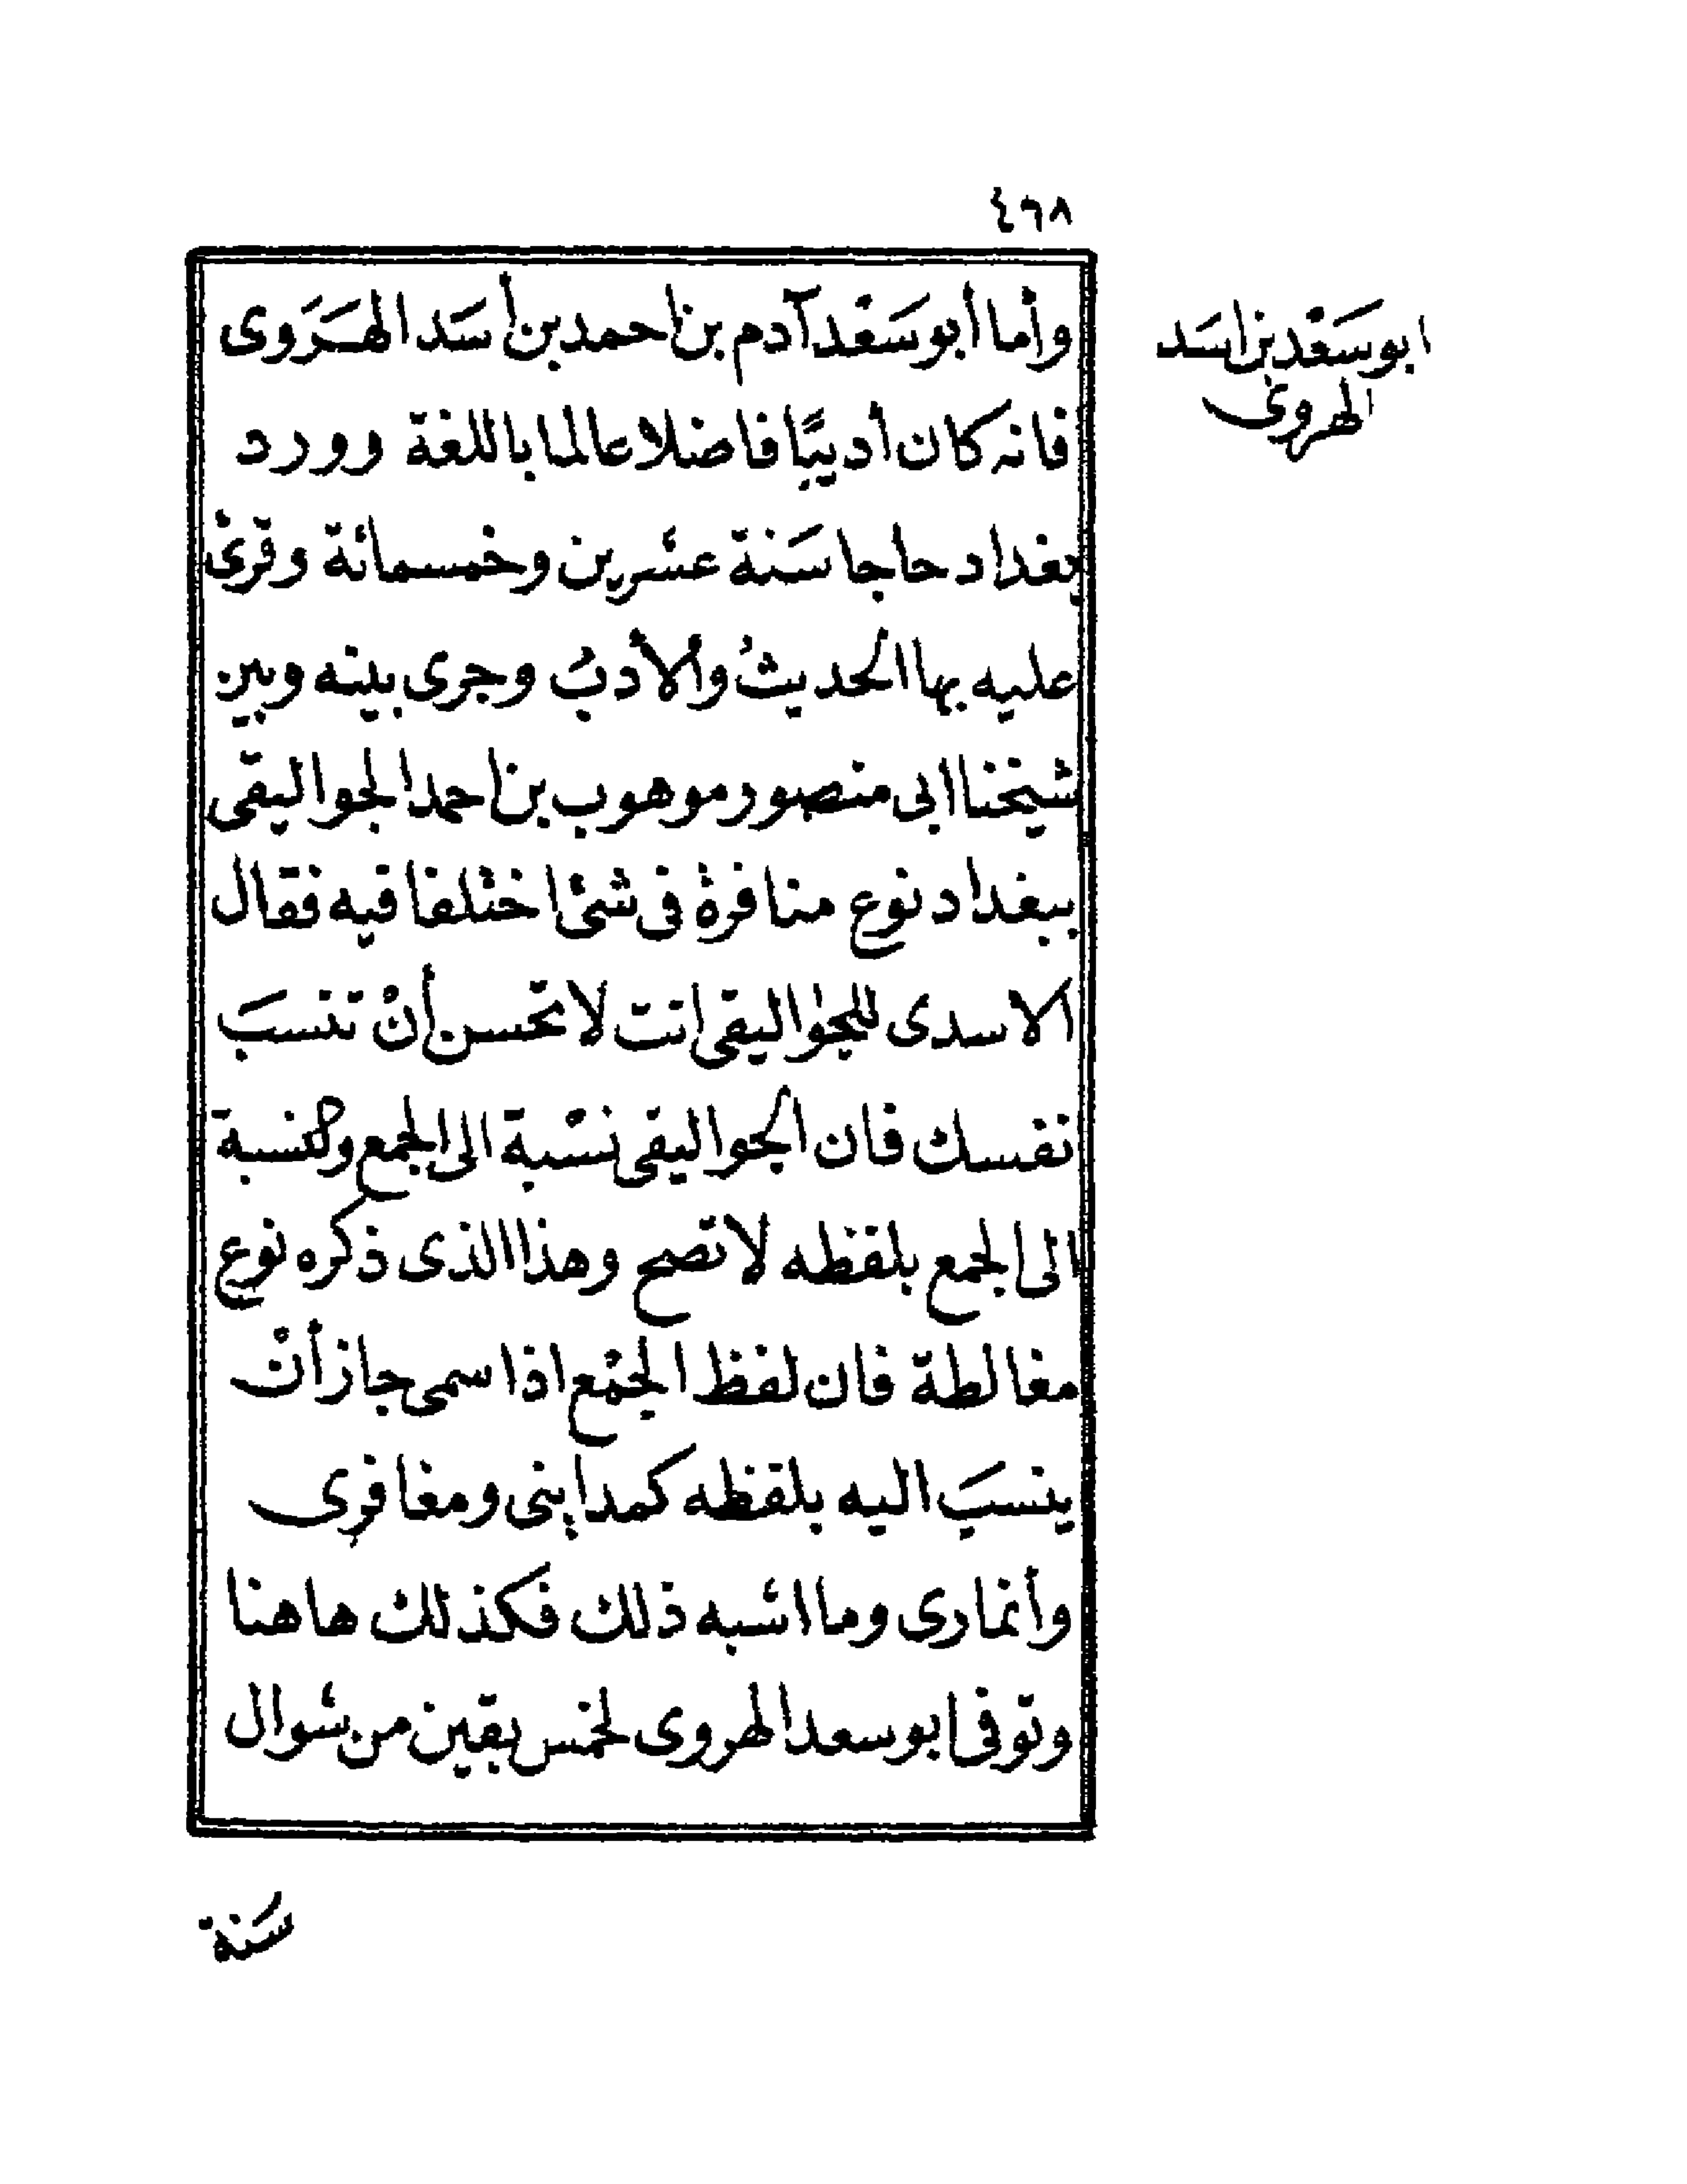 ٤٦٨
وأما أبو سَعْد آدم بن احمد بن أسَد الهَرَوى
ابو سَعْد بن اسَد
الهروى
فانه كان أديبًا فاضلا عالما باللغة وورد
بغداد حاجا سَنة عشرين وخمسمائة وقرئ
عليه بها الحديثُ والأدبُ وجرى بينه وبين
شيخنا ابى منصور موهوب بن احمد الجواليقى
ببغداد نوع منافرة فى شئ اختلفا فيه فقال
الاسدى للجواليقى انت لا تحسن أنْ تنسَبَ
نفسك فان الجواليقى نسْبة الى الجمع والنسبة
الى الجمع بلفظه لا تصح وهذا الذى ذكره نوع
مغالطة فان لفظ الجمْع اذا سمى جاز أنْ
ينسَبَ اليه بلفظه كمداينى ومعافرى
وأنمارى وما اشبه ذلك فكذلك هاهنا
وتوفى ابو سعد الهروى لخمس بقين من شوال
سَنة